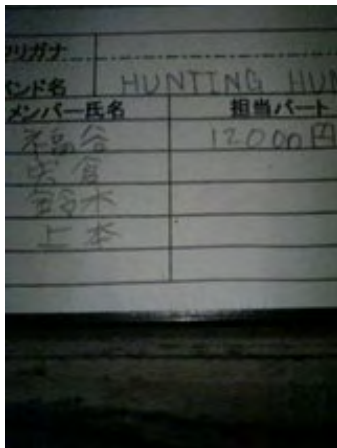 フリガナ
バンド名 HUNTING HUN
メンバー氏名 担当パート
福谷 12000円
鈴木
上本